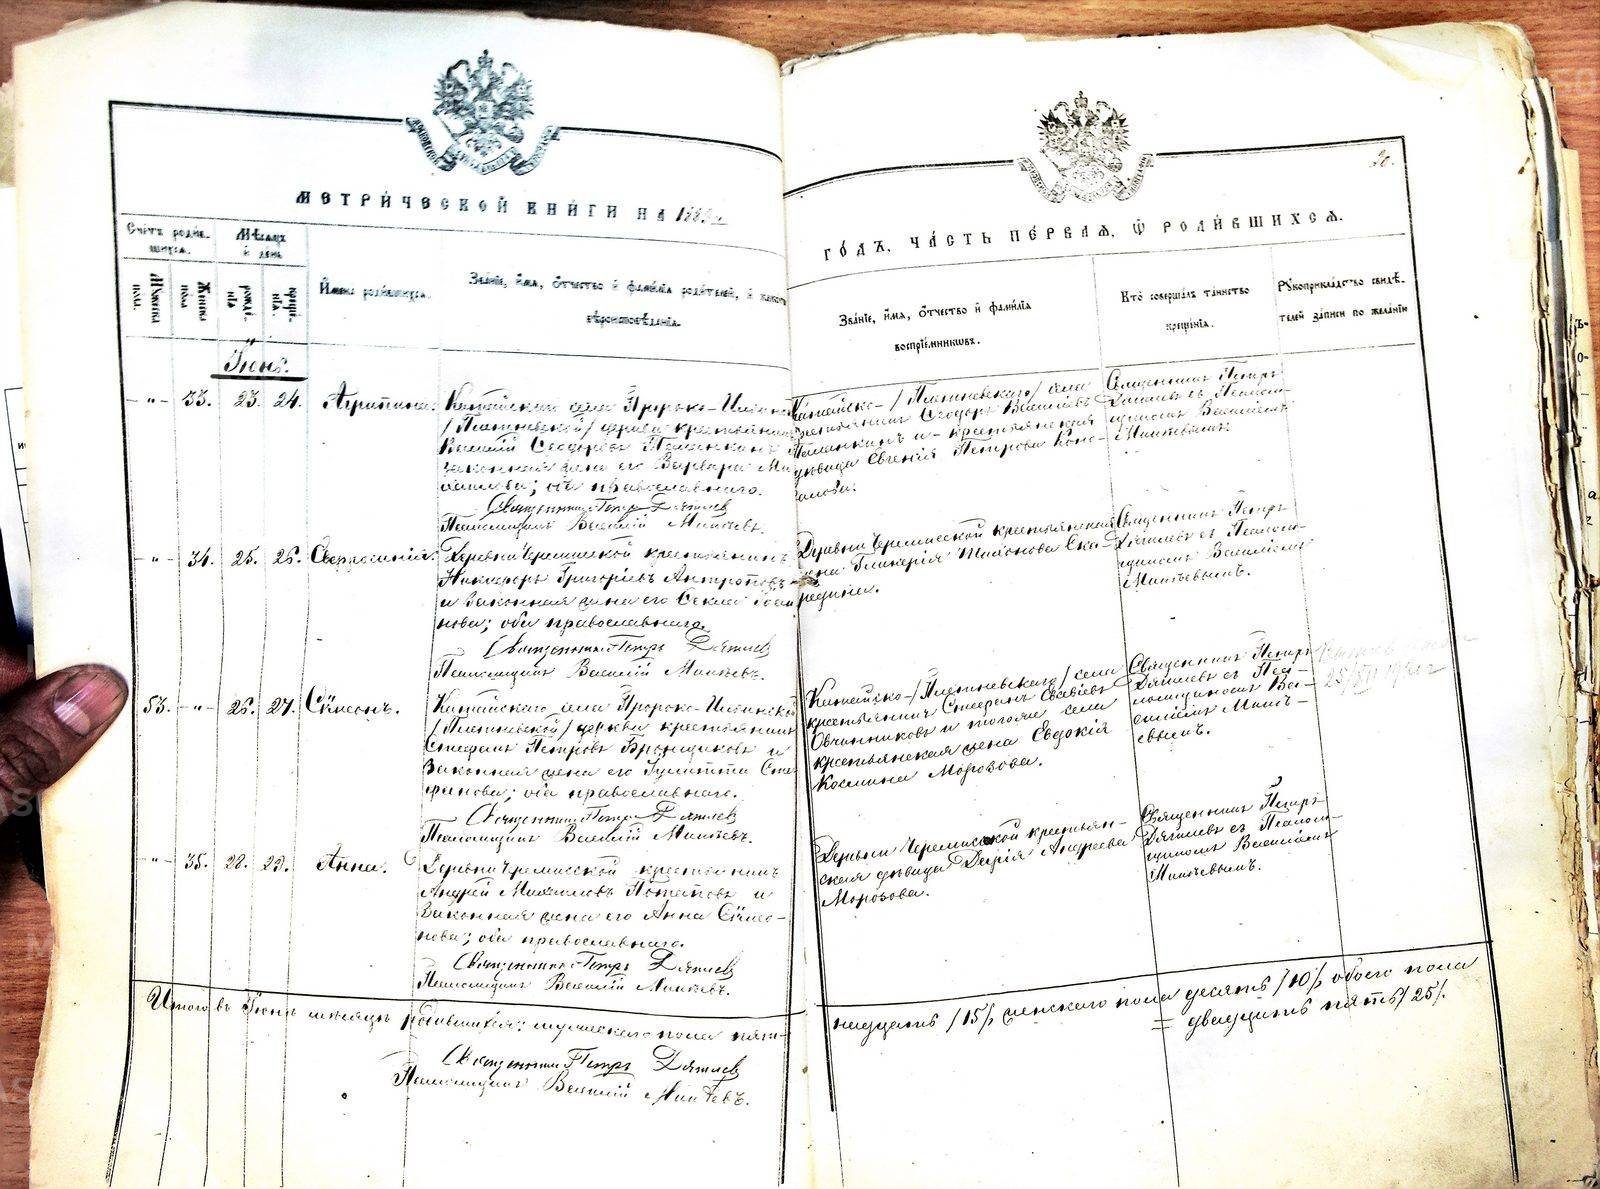 20.
МЕТРИЧЕСКОЙ КНИГИ НА 188
ГОДЪ, ЧАСТЬ ПЕРВАЯ, Ѡ РОДИВШИХСЯ.
Счетъ родив-
шихся.
Мѣсяцъ
и день
Мужеска
пола.
Женска
пола
рожде-
нія
креще-
нія
Имена родившихся.
Званіе, имя, отчество и фамилія родителей, и какого
вѣроисповѣданія.
Званіе, имя, отчество и фамилія
воспріемниковъ.
Кто совершалъ таинство
крещенія.
Рукоприкладство свидѣ-
телей записи по желанію
Іюнь.
-"- 33. 23. 24. Агрипина.
Китайскаго села Пророко-Ильинской
/Плетневской/ церкви крестьянинъ
Василій Ѳеодоровъ
законная жена его Варвара Ми-
хаилова; оба православнаго.
Священникъ Петръ Дягилев
Псаломщикъ Василій
Китайско-/Плетневскаго/ села
крестьянинъ Ѳеодоръ Васильевъ
и крестьянская
дѣвица Евгенія Петрова Коно-
валова.
Священникъ Петръ
Дягилевъ съ Псалом-
щикомъ Василіемъ
-"- 34. 25. 26. Евфросинія.
Деревни Черемисской крестьянинъ
Никифоръ Григорьевъ Антроповъ
и законная жена его Ѳекла
нова; оба православнаго.
Священникъ Петръ Дягилев
Псаломщикъ Василій
Деревни Черемисской крестьянская
жена Гликерія
Священникъ Петръ
Дягилевъ съ Псалом-
щикомъ Василіемъ
53. -"- 26. 27. Сѵмеонъ.
Китайскаго села Пророко-Ильинской
/Плетневской/ церкви крестьянинъ
Стефанъ Петровъ Бронщиковъ и
законная жена его Іулитта Сте-
фанова; оба православнаго.
Священникъ Петръ Дягилев
Псаломщикъ Василій
Китайско-/Плетневскаго/ села
крестьянинъ Стефанъ Савѣевъ
Овчинниковъ и тогоже села
крестьянская жена Евдокія
Космина Морозова.
Священникъ Петръ
Дягилевъ съ Пса-
ломщикомъ Ва-
силіемъ
-"- 35. 28. 29. Анна.
Деревни Черемисской крестьянинъ
Андрей Михаиловъ Потаповъ и
законная жена его Анна Сѵмео-
нова; оба православнаго.
Священникъ Петръ Дягилев
Псаломщикъ Василій
Деревни Черемисской крестьян-
ская дѣвица Дарія Андреева
Морозова.
Священникъ Петръ
Дягилевъ съ Псалом-
щикомъ Василіемъ
Итого въ Іюнѣ мѣсяцѣ родившихся: мужескаго пола пят-
надцать /15/ женскаго пола десять /10/ обоего пола
= двадцать пять /25/.
Священникъ Петръ Дягилев
Псаломщикъ Василій